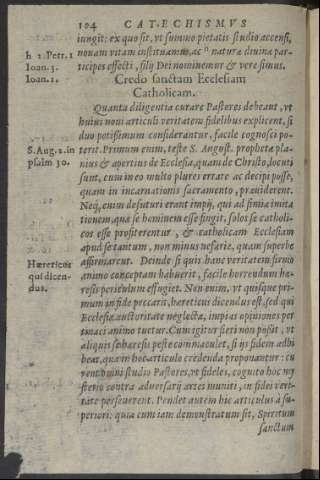 104 CATECHISMVS
iungit: ex quo fit, vt summo pietatis studio accensi,
h 2. Petr. 1 nouam vitam instituamus, ac h naturæ diuinæ par-
Ioan. 3. ticipes effecti, filij Dei nominemur & vere simus.
Ioan. 1. Credo sanctam Ecclesiam
Catholicam.
Quanta diligentia curare Pastores debeant, vt
huius noni articuli veritatem fidelibus explicent, si
duo potissimum considerantur, facile cognosci po-
S. Aug. 2. in terit. Primum enim, teste S. August. prophetæ pla-
psalm 30. nius & apertius de Ecclesia, quam de Christo, locuti
sunt, cum in eo multo plures errare ac decipi posse,
quam in incarnationis sacramento, præuiderent.
Neq, enim defuturi erant impij, qui ad simiæ imita
tionem, quæ se hominem esse fingit, solos se catholi-
cos esse profiterentur, & catholicam Ecclesiam
apud se tantum, non minus nefarie, quam superbe
affirmarent. Deinde si quis hanc veritatem firmo
Hæreticus animo conceptam habuerit, facile horrendum hæ-
qui dicen- resis periculum effugiet. Non enim, vt quisque pri-
dus. mum in fide peccarit, hæreticus dicendus est, sed qui
Ecclesiæ auctoritate neglecta, impias opiniones per
tinaci animo tuetur. Cum igitur fieri non possit, vt
aliquis se hæresis peste commaculet, si ijs fidem adhi
beat, quæ in hoc articulo credenda proponuntur: cu
rent omni studio Pastores, vt fideles, cognito hoc my
sterio contra aduersarij artes muniti, in fidei veri-
tate perseuerent. Pendet autem hic articulus a su-
periori: quia cum iam demonstratum sit, Spiritum
sanctum